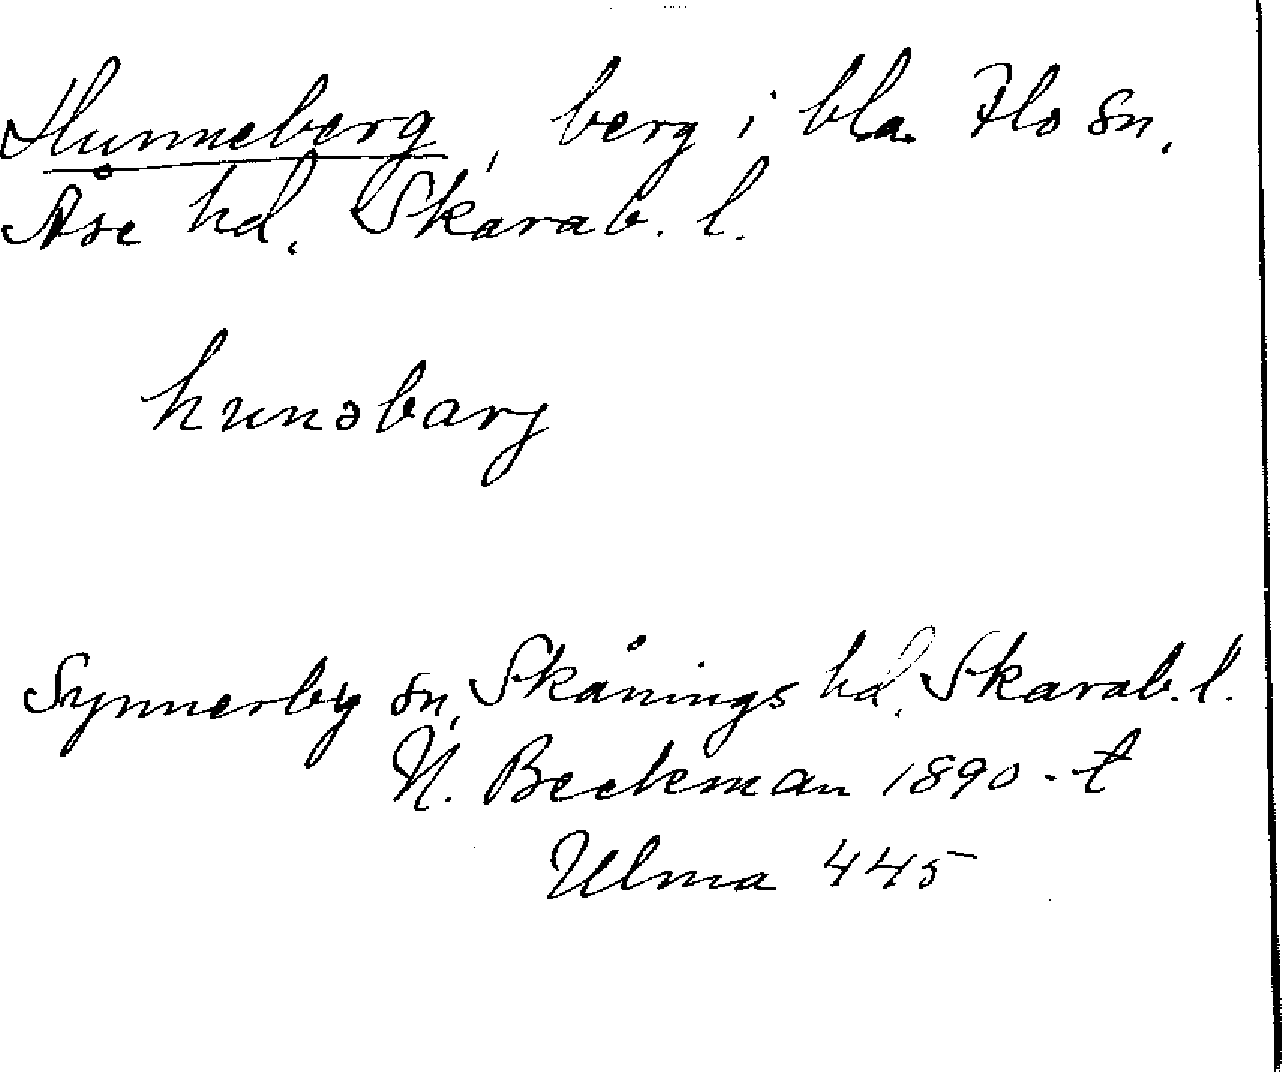 Hunneberg, berg i bl.a. Flo sn.
Åse hd. Skarab. l.
hunəbarj
Synnerby sn, Skånings hd. Skarab. l.
N. Beckman 1890-t
Ulma 445